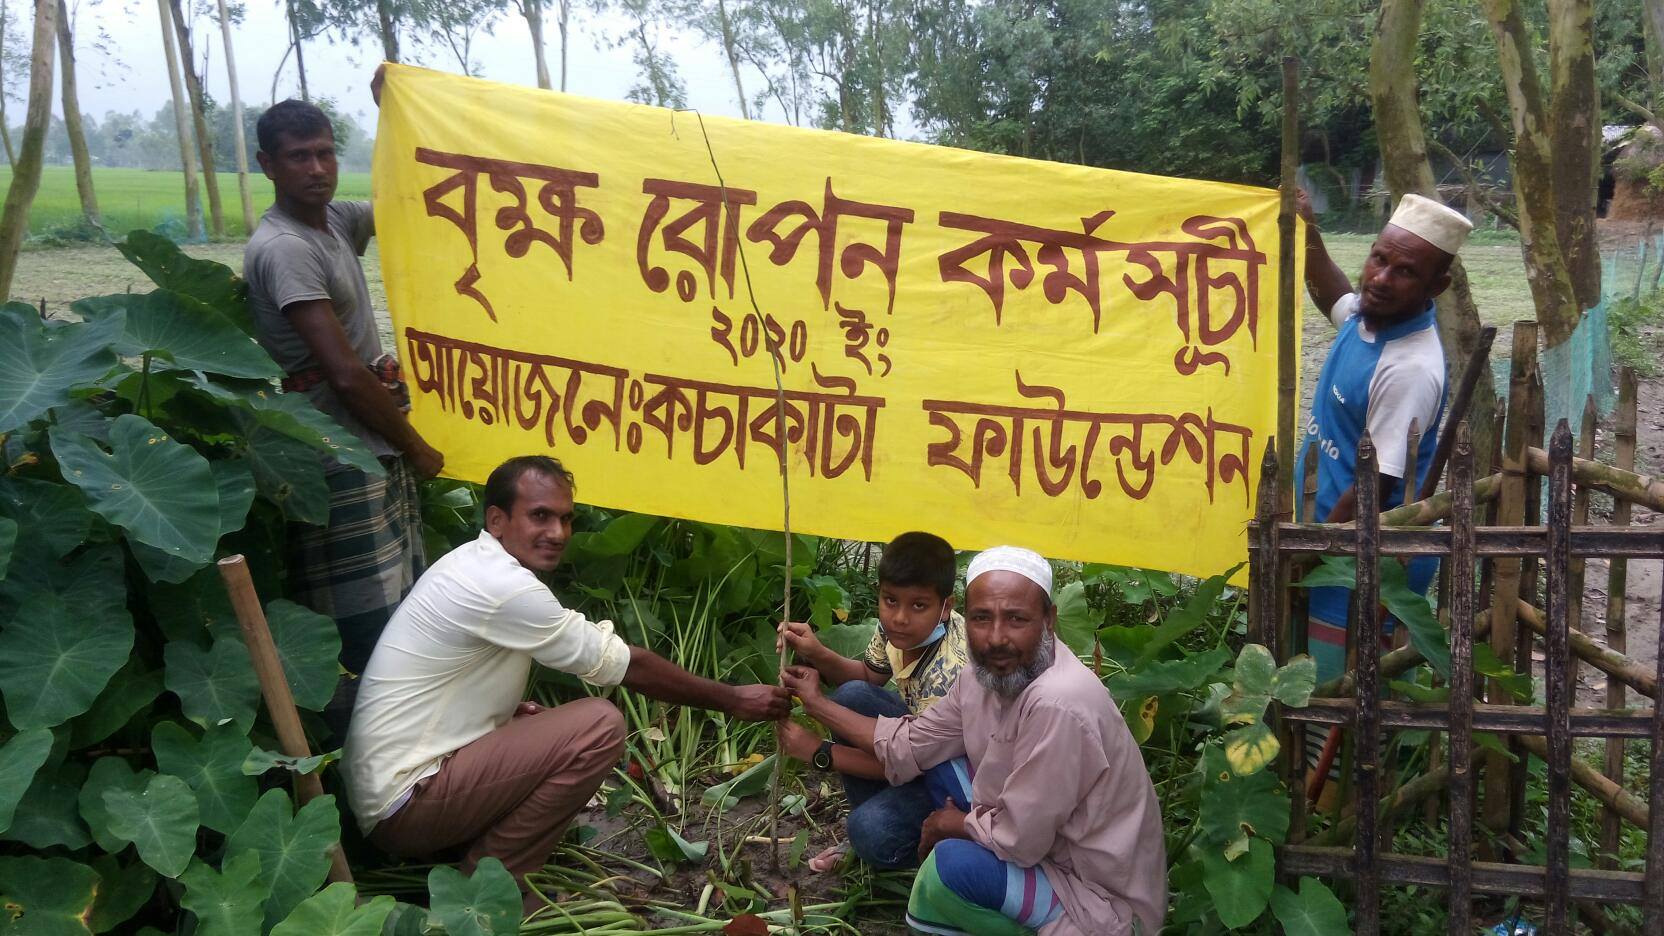 বৃক্ষ রোপন কর্মসূচী
২০২০ ইং
আয়োজনেঃকচাকাটা ফাউন্ডেশন